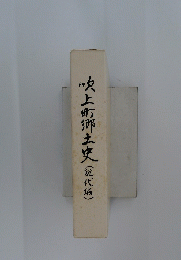 吹上町郷土史(現代編)